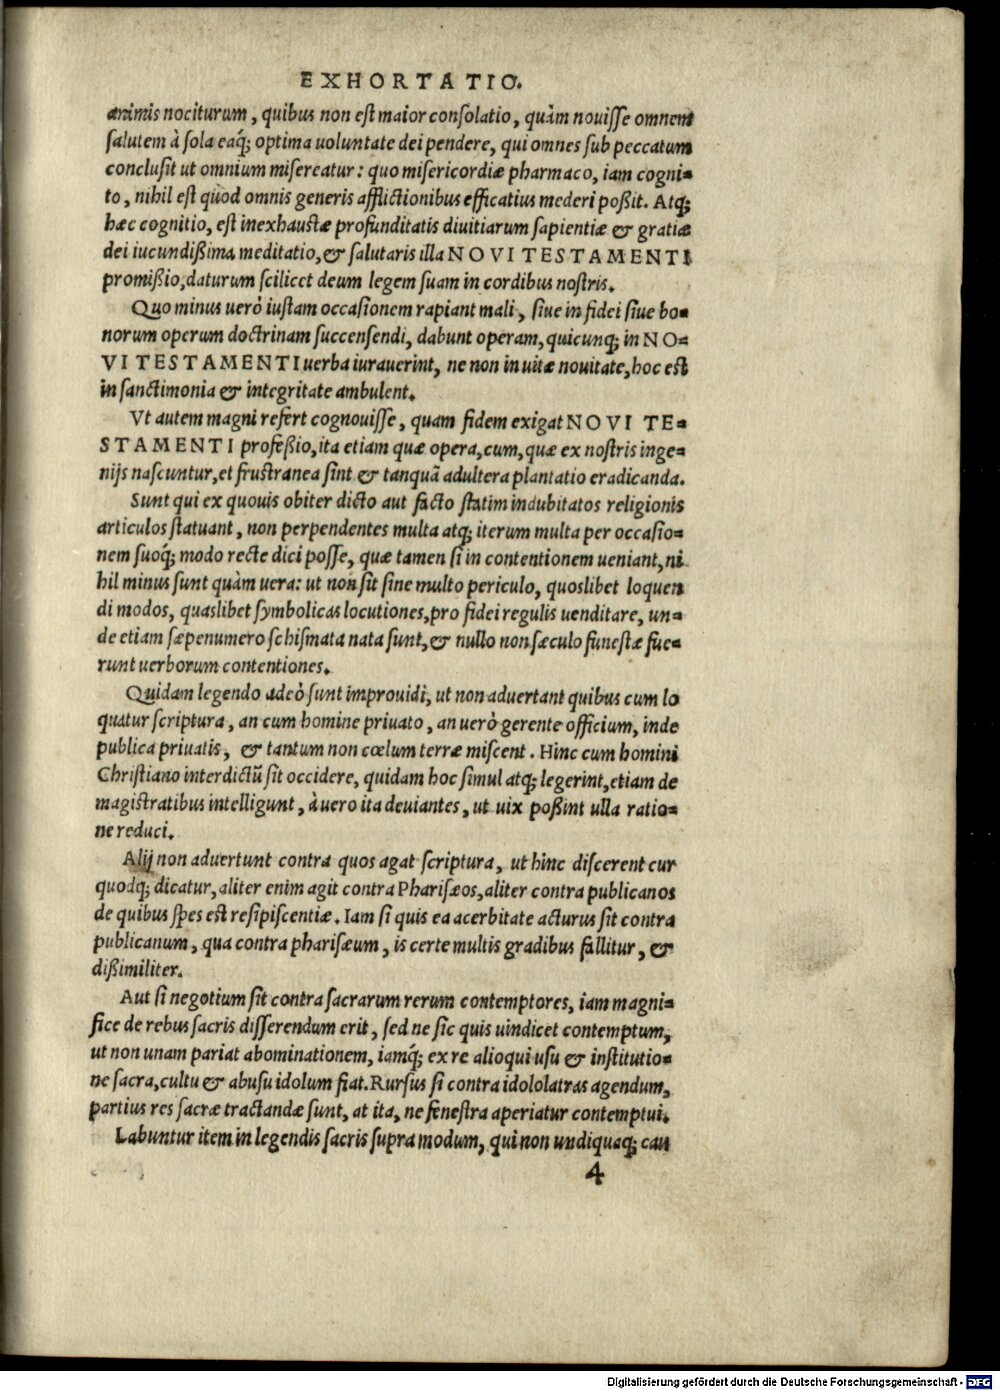 EXHORTATIO.
animis nociturum, quibus non est maior consolatio, quàm nouisse omnem
salutem à sola eaq́; optima uoluntate dei pendere, qui omnes sub peccatum
conclusit ut omnium misereatur: quo misericordiæ pharmaco, iam cogni-
to, nihil est quod omnis generis afflictionibus efficatius mederi poßit. Atq́;
hæc cognitio, est inexhaustæ profunditatis diuitiarum sapientiæ & gratiæ
dei iucundißima meditatio, & salutaris illa NOVI TESTAMENTI
promißio, daturum scilicet deum legem suam in cordibus nostris.
Quo minus uerò iustam occasionem rapiant mali, siue in fidei siue bo-
norum operum doctrinam succensendi, dabunt operam, quicunq; in NO-
VI TESTAMENTI uerba iurauerint, ne non in uitæ nouitate, hoc est
in sanctimonia & integritate ambulent.
Vt autem magni refert cognouisse, quam fidem exigat NOVI TE-
STAMENTI profeßio, ita etiam quæ opera, cum, quæ ex nostris inge-
nijs nascuntur, et frustranea sint & tanquã adultera plantatio eradicanda.
Sunt qui ex quouis obiter dicto aut facto statim indubitatos religionis
articulos statuant, non perpendentes multa atq; iterum multa per occasio-
nem suoq́; modo recte dici posse, quæ tamen si in contentionem ueniant, ni
hil minus sunt quàm uera: ut non sit sine multo periculo, quoslibet loquen
di modos, quaslibet symbolicas locutiones, pro fidei regulis uenditare, un-
de etiam sæpenumero schismata nata sunt, & nullo non sæculo funestæ fue-
runt uerborum contentiones.
Quidam legendo adeò sunt improuidi, ut non aduertant quibus cum lo
quatur scriptura, an cum homine priuato, an uerò gerente officium, inde
publica priuatis, & tantum non cœlum terræ miscent. Hinc cum homini
Christiano interdictũ sit occidere, quidam hoc simul atq; legerint, etiam de
magistratibus intelligunt, à uero ita deuiantes, ut uix poßint ulla ratio-
ne reduci.
Alij non aduertunt contra quos agat scriptura, ut hinc discerent cur
quodq; dicatur, aliter enim agit contra Pharisæos, aliter contra publicanos
de quibus spes est resipiscentiæ. Iam si quis ea acerbitate acturus sit contra
publicanum, qua contra pharisæum, is certe multis gradibus fallitur, &
dißimiliter.
Aut si negotium sit contra sacrarum rerum contemptores, iam magni-
fice de rebus sacris disserendum erit, sed ne sic quis uindicet contemptum,
ut non unam pariat abominationem, iamq́; ex re alioqui usu & institutio-
ne sacra, cultu & abusu idolum fiat. Rursus si contra idololatras agendum,
partius res sacræ tractandæ sunt, at ita, ne fenestra aperiatur contemptui.
Labuntur item in legendis sacris supra modum, qui non undiquaq; cau
4
Digitalisierung gefördert durch die Deutsche Forschungsgemeinschaft - DFG